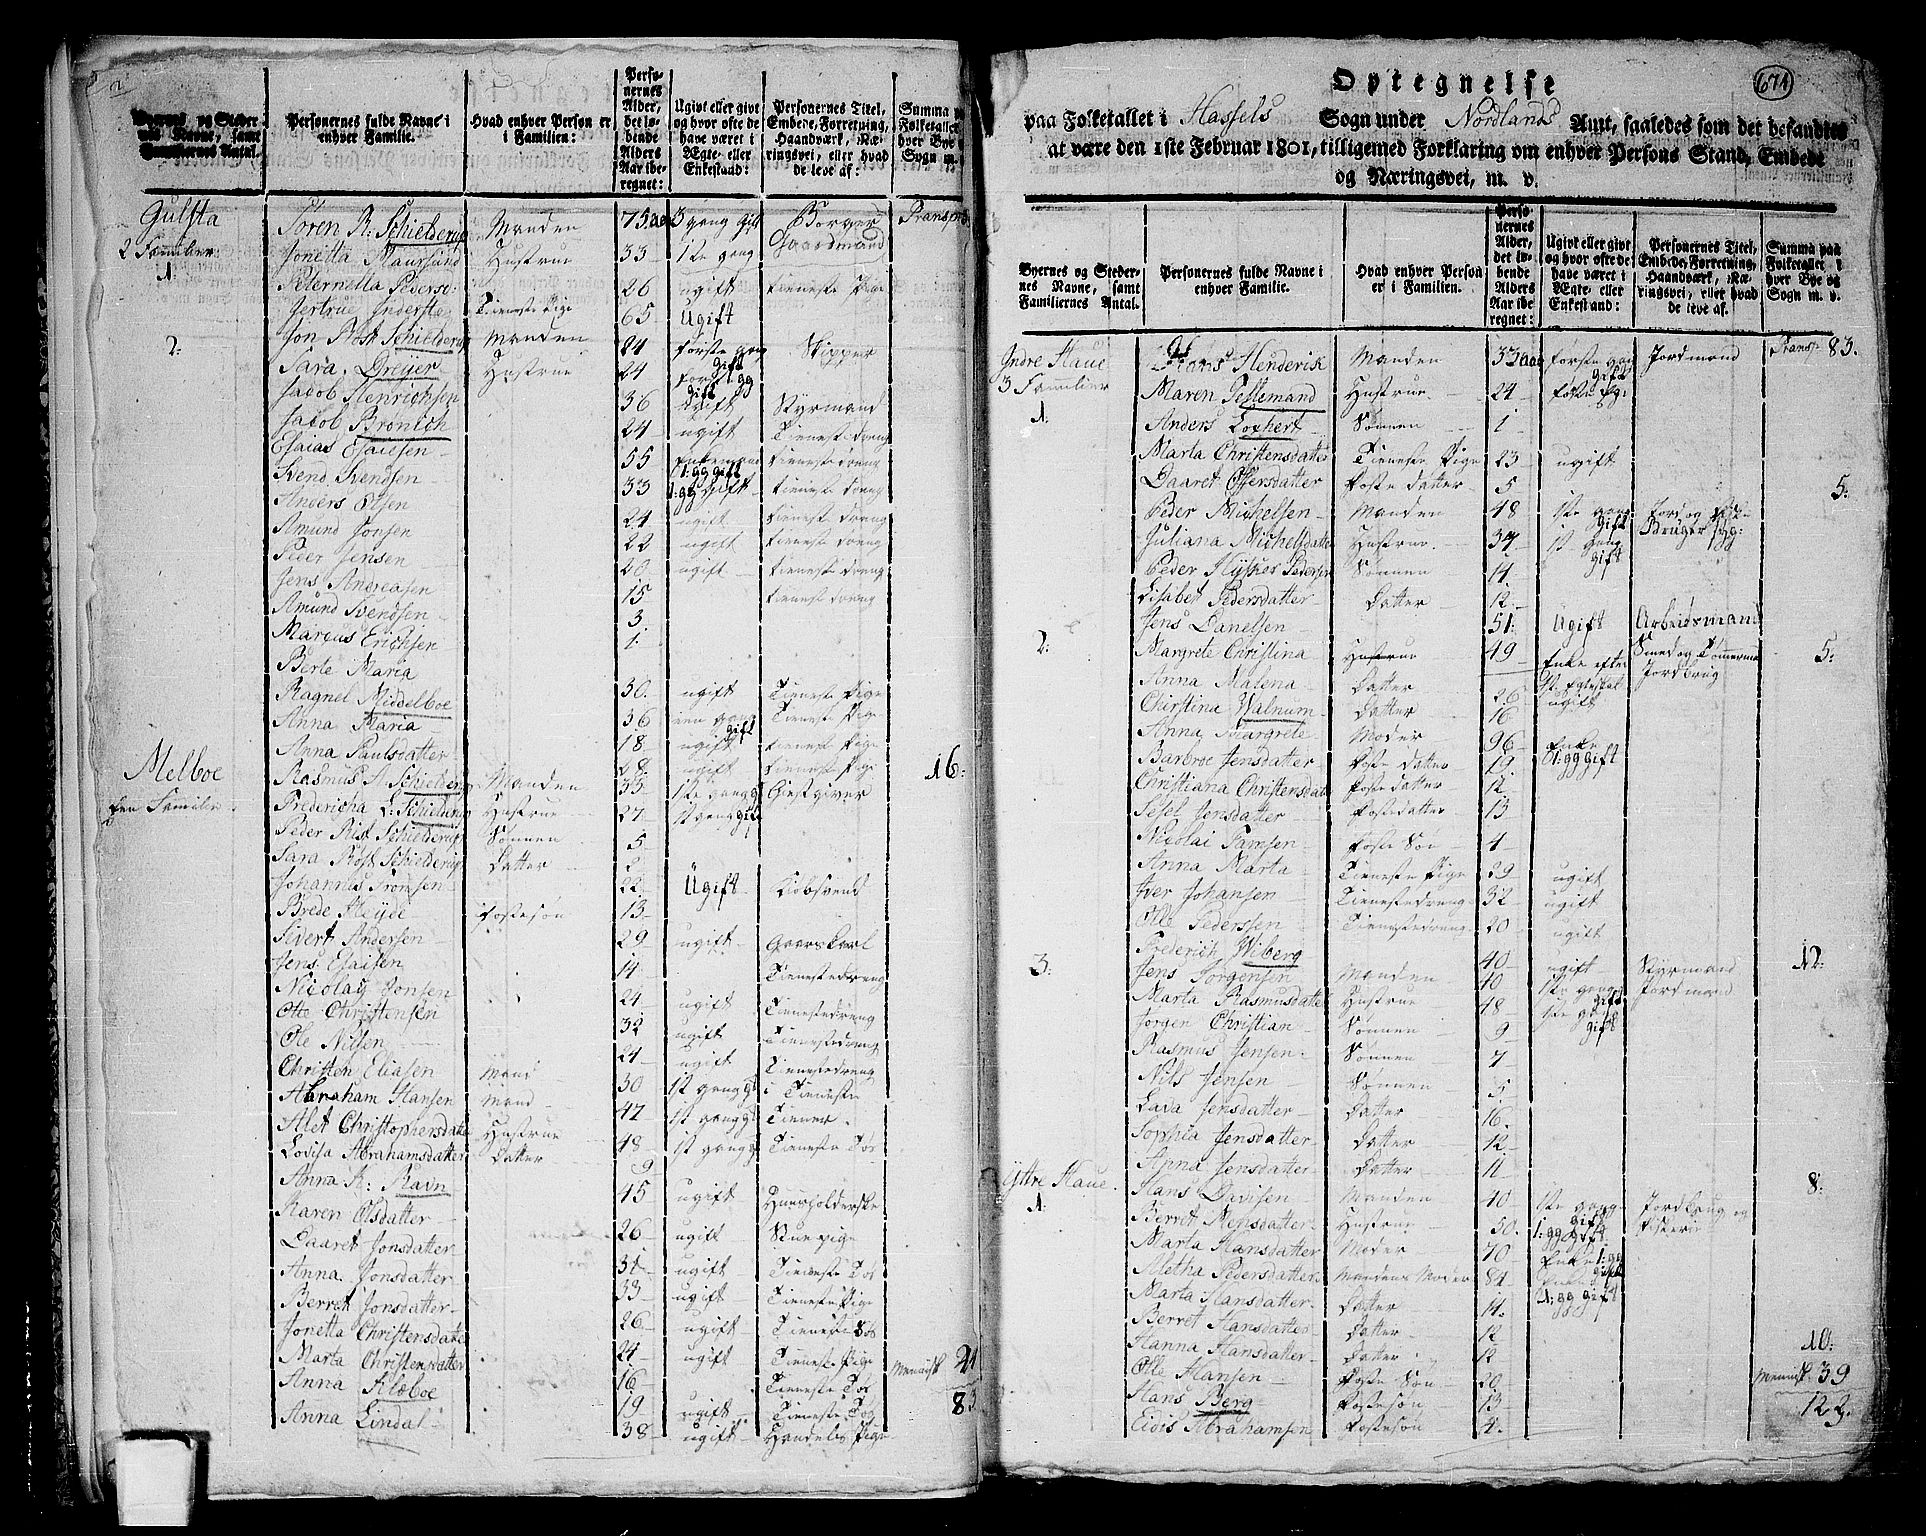 Byernes og Steder-
nes Navne, samt
Familiernes Antal.
Personernes fulde Navne i
enhver Familie.
Hvad enhver Person er
i Familien:
Perso-
nernes
Alder,
det lø-
bende
Alders
Aar ibe-
regnet:
Ugivt eller givt
og hvor ofte de
have været i
Ægte- eller
Enkestand:
Personernes Titel,
Embede, Forretning,
Haandværk, Næ-
ringsvei, eller hvad
de leve af:
Summa
Folketallet
hver Bye
Sogn m.
Gulsta Søren R: Schielderup Manden 75 aar 3 gang gift Borger Transp
2 Familier Jonetta Maursund Hustrue 33 1ste gang Gaardmand
1 Peternella Peders: 26 ugift tieneste Pige
Jertrue Inderstæ Tieneste Pige 65 Ugift
2: Jon Røst Schielderup Manden 24 første gang gift Skipper
Sara Dreyer Hustrue 24 første gg gift
Jacob Henrichsen 36 ugift Styrmand
Jacob Bronich 24 ugift Tieneste dreng
Esaias Esaiesen 55 Enkemand 1: gg gift tieneste dreng
Svend Svendsen 33 1: gg gift tieneste dreng
Anders Olsen 24 ugift tieneste dreng
Amund Jonsen 22 ugift tieneste dreng
Peder Jensen 20 ugift tieneste dreng
Jens Andreasen 15 tieneste dreng
Amund Svendsen 3
Marcus Erichsen 1
Berte Maria 30. ugift Tieneste Pige
Ragnel Middelboe 36 een gang gift Tieneste Pige
Anna Maria 18 ugift tieneste Pige
Anna Paulsdatter 28 ugift tieneste Pige 16:
Melboe Rasmus A Schielderup Manden 35 1ste gang g Giestgiver
Een Familie Fredericha L: Schielderup Hustrue 27 1st gang gift
Peder Rist Schielderup Sønnen 5
Sara Røst Schielderup Datter 2
Johannes Tronsen 22 Ugift Kiøbsvend
Brede Heyde Fostersøn 13
Sivert Andersen 29 ugift Gaardskarl
Jens Esaisen 14 Tienestedreng
Nicolay Jonsen 24 ugift Tienestedreng
Otte Christensen 32 ugift
Ole Nilsen 24 ugift Tienestedreng
Christen Eliasen Mand 30 1st gang g Tieneste
Abraham Hansen Mand 42 1st gang g Tiener
Alet Christophersdatter Hustrue 48 1st gang g Tieneste Tøs
Lovisa Abrahamsdatter Datter 9
Anna K: Ravn 45 ugift Huusholderske
Karen Olsdatter 26 ugift Stuepige
Daaret Jonsdatter 31 ugift Tieneste Tøs
Anna Jonsdatter 33 ugift Tieneste Pige
Berret Jonsdatter 26 ugift Tieneste Tøs
Jonetta Christensdatter 24 ugift Tieneste Pige
Marta Christensdatter 16 Tieneste Tøs Mennisk 24
Anna Klæboe 19 ugift Tieneste Tøs 83
Anna Lindal 38 ugift Handels Pige
671
Optegnelse
paa Folketallet i Hassels Sogn under Nordlands Amt, saaledes som det befandtes
at være den 1ste Februar 1801, tilligemed Forklaring om enhver Persons Stand, Embede
og Næringsvei, m. v.
Byernes og Steder-
nes Navne, samt
Familiernes Antal.
Personernes fulde Navne i
enhver Familie.
Hvad enhver Person
er i Familien.
Perso-
nernes
Alder,
det lø-
bende
Alders
Aar ibe-
regnet:
Ugivt eller givt
og hvor ofte de
have været i
Ægte- eller
Enkestand:
Personernes Titel,
Embede, Forretning,
Haandværk, Næ-
ringsvei, eller hvad
de leve af.
Summa paa
Folketallet i
hver Bye og
Sogn m. v.
Indre Haue Hans Henderik Manden 33 aar første gang gift Jordmand Transp. 83.
3 Familier Maren Tellemand Hustrue 24 første g:
1. Anders Loxhert Sønnen 1
Marta Christensdatter Tieneste Pige 23 ugift
Daaret Ollersdatter Foste datter 5 5:
Peder Michelsen Manden 48 1ste gang gift Jord og
Juliana Michelsdatter Hustrue 37 1st gang gift Bruger
Peder Hysker Pedersen Sønnen 14
Lisabet Pedersdatter Datter 12
Jens Danelsen 51: Ugift Arbeidsmand
2: Margrete Christina Hustrue 49 Enke efter 1st Egteskab Smed og Tømmermand Jordbrug 5:
Anna Malena Datter 26 ugift
Christina Walnum Datter 16
Anna Margrete Moder 96 Enke 1: gg gift
Barbroe Jensdatter Foste datter 19
Christiana Christensdatter Fostedatter 12
Sesel Jensdatter Fostedatter 13
Nicolai Tamsen Foste Søn 4
Anna Marta Tieneste Pige 29 ugift
Iver Johansen Tienestedreng 32 ugift
Ole Pederssen Tienestedreng 20 ugift
Frederich Wiberg 40 ugift Styrmand 12:
3. Jens Jørgensen Manden 40 1ste gang gift Jordmand
Marta Rasmusdatter Hustrue 48 1ste gang gift
Jørgen Christian Sønnen 9
Rasmus Jensen Sønnen 7
Nils Jensen Sønnen 5
Lava Jensdatter Datter 16.
Sophia Jensdatter Datter 12
Anna Jensdatter Datter 11 8:
Ÿttre Haue Hans Davisen Manden 40 1ste gang gift Jordbrug og
1. Berret Monsdatter Hustrue 50. 1: gg gift Fiskerie
Marta Hansdatter Moder 70 Enke 1: gg gift
Metha Pedersdatter Mandens Moder 84 Enke 1: gg gift
Marta Hansdatter Datter 14.
Berret Hansdatter Datter 12
Hanna Hansdatter Datter 12 10:
Ole Hansen Foste Søn 20 Mennisk. 39
Hans Berg Fostesøn 13 122.
Eidis Abrahamsen Fostesøn 4.